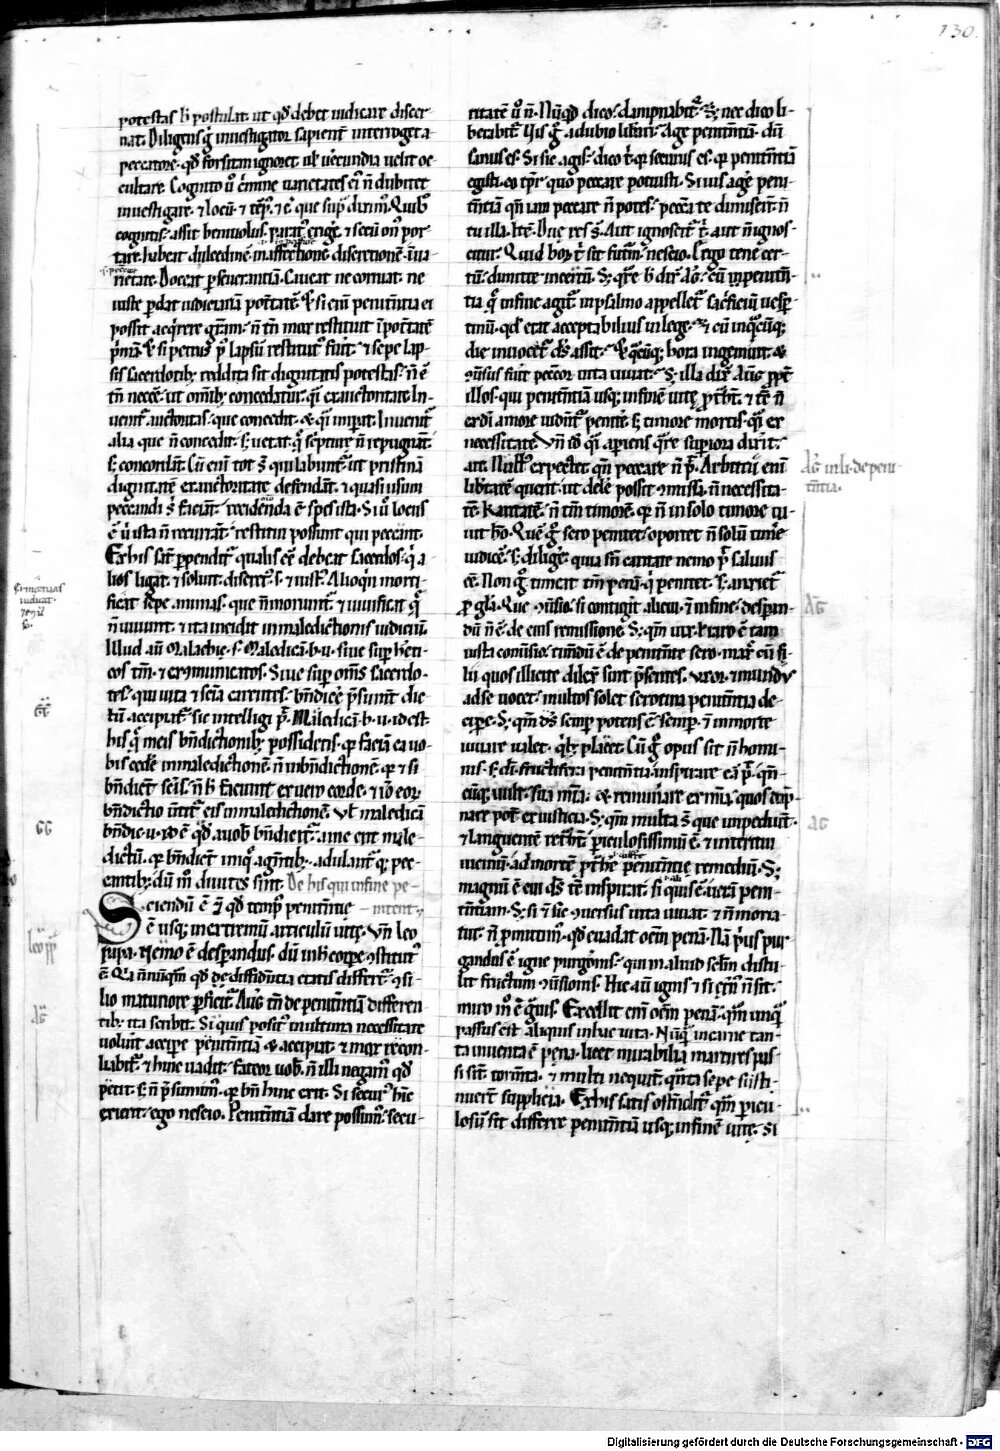 130.
potestas h̄ postulat. ut qd̄ debet iudicare discer-
nat. Diligens gͥ inuestigator sapient̄ interroget a
peccatore. qd̄ forsitan ignoret. uł uerecundia uelit oc-
cultare. Cognito ū c̄mine uarietates ei n̄ dubitet
inuestigare. ⁊ locū. ⁊ tēp̄. ⁊ c̄ que sup̄ dixim̄. Quib
cognitis. assit beniuolus. parat̄ erige. ⁊ secū on̄ por
tare. habeat dulcedinē in affectionē discretionē. ī ua-
rietate. Doceat p̄seuerantiā. Caueat ne corruat. ne
iuste p̄dat iudiciariā potētatē. Et si enī penitentia ei
possit acq̄rere gr̄am. n̄ tn̄ mox restituit ī potētatē
p̄mā. Et si petrus p̄ lapsū restitut fuit. ⁊ sepe lap-
sis sacerdotib; reddita sit dignitatis potestas. n̄ ē
tn̄ necc̄e. ut om̄ib; concedatur. q̄i ex auctoritate. In-
uenit̄ auctoritas. que concedit. & q̄i imp̄at. Inuenit̄
alia que n̄ concedit. s; uetat. q̄ scripture n̄ repugnat̄.
s; concordāt. Cū enī tot s̄ qui labunt̄. ut pristinā
dignitatē ex auctoritate defendāt. ⁊ quasi usum
peccandi s̄ faciāt. recidenda ē spes ista. Si ū locus
ē ū ista n̄ recurrāt. restitui possunt qui peccant.
Ex his sat̄ p̄pendit̄ qualis cē debeat sacerdos. q̄ a-
lios ligat. ⁊ soluit. discret̄. s. ⁊ iust̄. Alioq̄n morti-
ficat sepe animas. que n̄ moriunt̄. ⁊ uiuificat q̄
n̄ uiuunt. ⁊ ita incidit in maledictionis iudiciū.
Illud aū Malachie. s. Maledicā. b. u. siue sup̄ heti-
cos tm̄. ⁊ excōmunicatos. Siue sup̄ om̄s sacerdo-
tes. qui uita ⁊ sciā carentes. bn̄dicē p̄sunt dic-
tū accipiat̄. sic intelligi p̄. Maledicā. b. u. id est.
his q̄ meis bn̄dictionib; possidetis. qr faciā ea uo-
bis cedē in maledictionē n̄ in bn̄dictionē. qr ⁊ si
bn̄diēt scīs. n̄ h̄ faciunt ex uero corde. ⁊ iō eor
bn̄dictio ūtit̄ eis in maledictionē. Vł maledicā
bn̄dic. u. id ē qd̄ a uob bn̄diēt̄. a me erit male-
dictū. qr bn̄diēt iniq̄ agn̄tib;. adulant̄ q; pec-
cantib; dū m̄ diuites sint. De his qui in fine pe-
Sciendū ē ⁊ qd̄ temp̄ penitn̄tie nitent
ē usq; in extremū articulū uite. Vn̄ leo
papa. Nemo ē desperandus. dū in h̄ corpe ꝯstitut̄
ē. Qa n̄nūqm̄ qd̄ de diffidn̄tia etatis differt̄. ꝯsi-
lio maturiore p̄ficit̄. Aug tn̄ de penitn̄tiā differen-
tib; ita scribit. Si quis posit̄ in ultima necessitate
uolūit accipe penitn̄tiā & accipiat. ⁊ mox recon-
liabit̄. ⁊ hinc uadit. fateor uob. n̄ illi negam̄ qd̄
petit. s; n̄ p̄sumim̄. qr bn̄ hinc exit. Si secur̄ hīc
exierit. ego nescio. Penitn̄tiā dare possum̄. secu-
ritatē ū n̄. Nūqd̄ dico. dampnabit̄. S; nec dico li-
berabit̄. Uis gͦ. a dubio lib̄ari. Age penitn̄tiā dū
sanus es. Si sic agis. dico t̄. qr securus es. qr penitn̄tiā
egisti. eo tp̄r quo peccare potuisti. Si uis agē peni-
tn̄tiā qn̄ iam peccare n̄ potes. peccata te dimiserūt. n̄
tu illa. Itē. Due res s̄. Aut ignoscet̄ t̄. aut n̄ ignos-
citur. Quid hor t̄ sit futm̄. nescio. Ergo tene cer-
tū. dimitte incertū. S; q̄re h dix̄ Ag. cū in penitn̄-
tia q̄ in fine agit̄ in psalmo appellet̄ sac̄ficiū uesp̄-
tinū. qd̄ erat acceptabilius in lege. & cū in q̄cūq;
die inuocet̄ ds̄ assit. Et q̄cūq; hora ingemuit. &
ꝯuersus fuit peccor uita uiuat. S; illa dix̄ Aug prpt̄
illos. qui penitentiā usq; in finē uite p̄thūt. ⁊ tc̄ n̄
ex dī amore uident̄ penitē. s; timore mortis. q̄i ex
necessitate. Vn̄ id q̄i apiens q̄re supiora dixit.
ait. Null expectet qn̄ peccare n̄ p̄. Arbitrii enī
libtatē querit. ut delē possit ⁊missa. n̄ necessita-
tē. Karitatē. n̄ tm̄ timorē. qr n̄ in solo timore ui-
uit hō. Quē gͦ sero penitet. oportet n̄ solū timē
iudicē. s; diligē. quia sn̄ caritate nemo p̄ saluus
cē. Non gͦ timeat tm̄ penā q̄ penitet. s; anxiet̄
p gla. Que ꝯuersio si contigit alicui. ⁊ in fine. desperan-
dū n̄ ē. de eius remissione. S; qm̄ uix l raro ē tam
iusta conuersio. timdū ē de penitente sero. max̄ cū fi-
lii quos illicite dilex̄ sint p̄sentes. uxor. ⁊ mundꝰ
ad se uocet. multos solet serotina penitn̄tia de-
cipe. S; qm̄ ds̄ semp̄ potens ē. semp̄. ⁊ in morte
iuuare ualet. q̄b; placet. Cū gͦ opus sit n̄ homi-
nis. s; di. fructifera penitn̄tia. inspirare eā p̄. qn̄-
cūq; uult. sua mīa. & remun̄are ex mīa. quos damp-
nare pot̄ ex iusticia. S; qm̄ multa s̄ que impediūt.
⁊ languentē rethūt. piculosissimū ē. ⁊ interitui
uicinū. ad mortē p̄the penitn̄tie remediū. S;
magnū ē cui ds̄ tc̄ inspirat. si quis ē. uerā peni-
tn̄tiam. S; si ⁊ sic ꝯuersus uita uiuat. ⁊ n̄ moria-
tur. n̄ p̄mittim̄. qd̄ euadat om̄em penā. Nā p̄us pur-
gandus ē igne purgōnis. qui in aliud sclm̄ distu-
lit fructum ꝯuersionis. Hic aū ignis ⁊ si etn̄ n̄ sit.
miro m̄ ē gͣuis. Excellit eni om̄em penā. qm̄ unq̄
passus est aliquis in hac uita. Nūq̄ in carne tan-
ta inuenta ē pena. licet mirabilia martires pas-
si sit̄ torm̄ta. ⁊ multi nequit̄. q̄nta sepe susti-
nuert̄ supplicia. Ex his satis ostn̄dit̄ qm̄ picu-
losū sit differre penitn̄tiā usq; in finē uite. Si
Ag in li. de peni-
tn̄tia.
leo pp